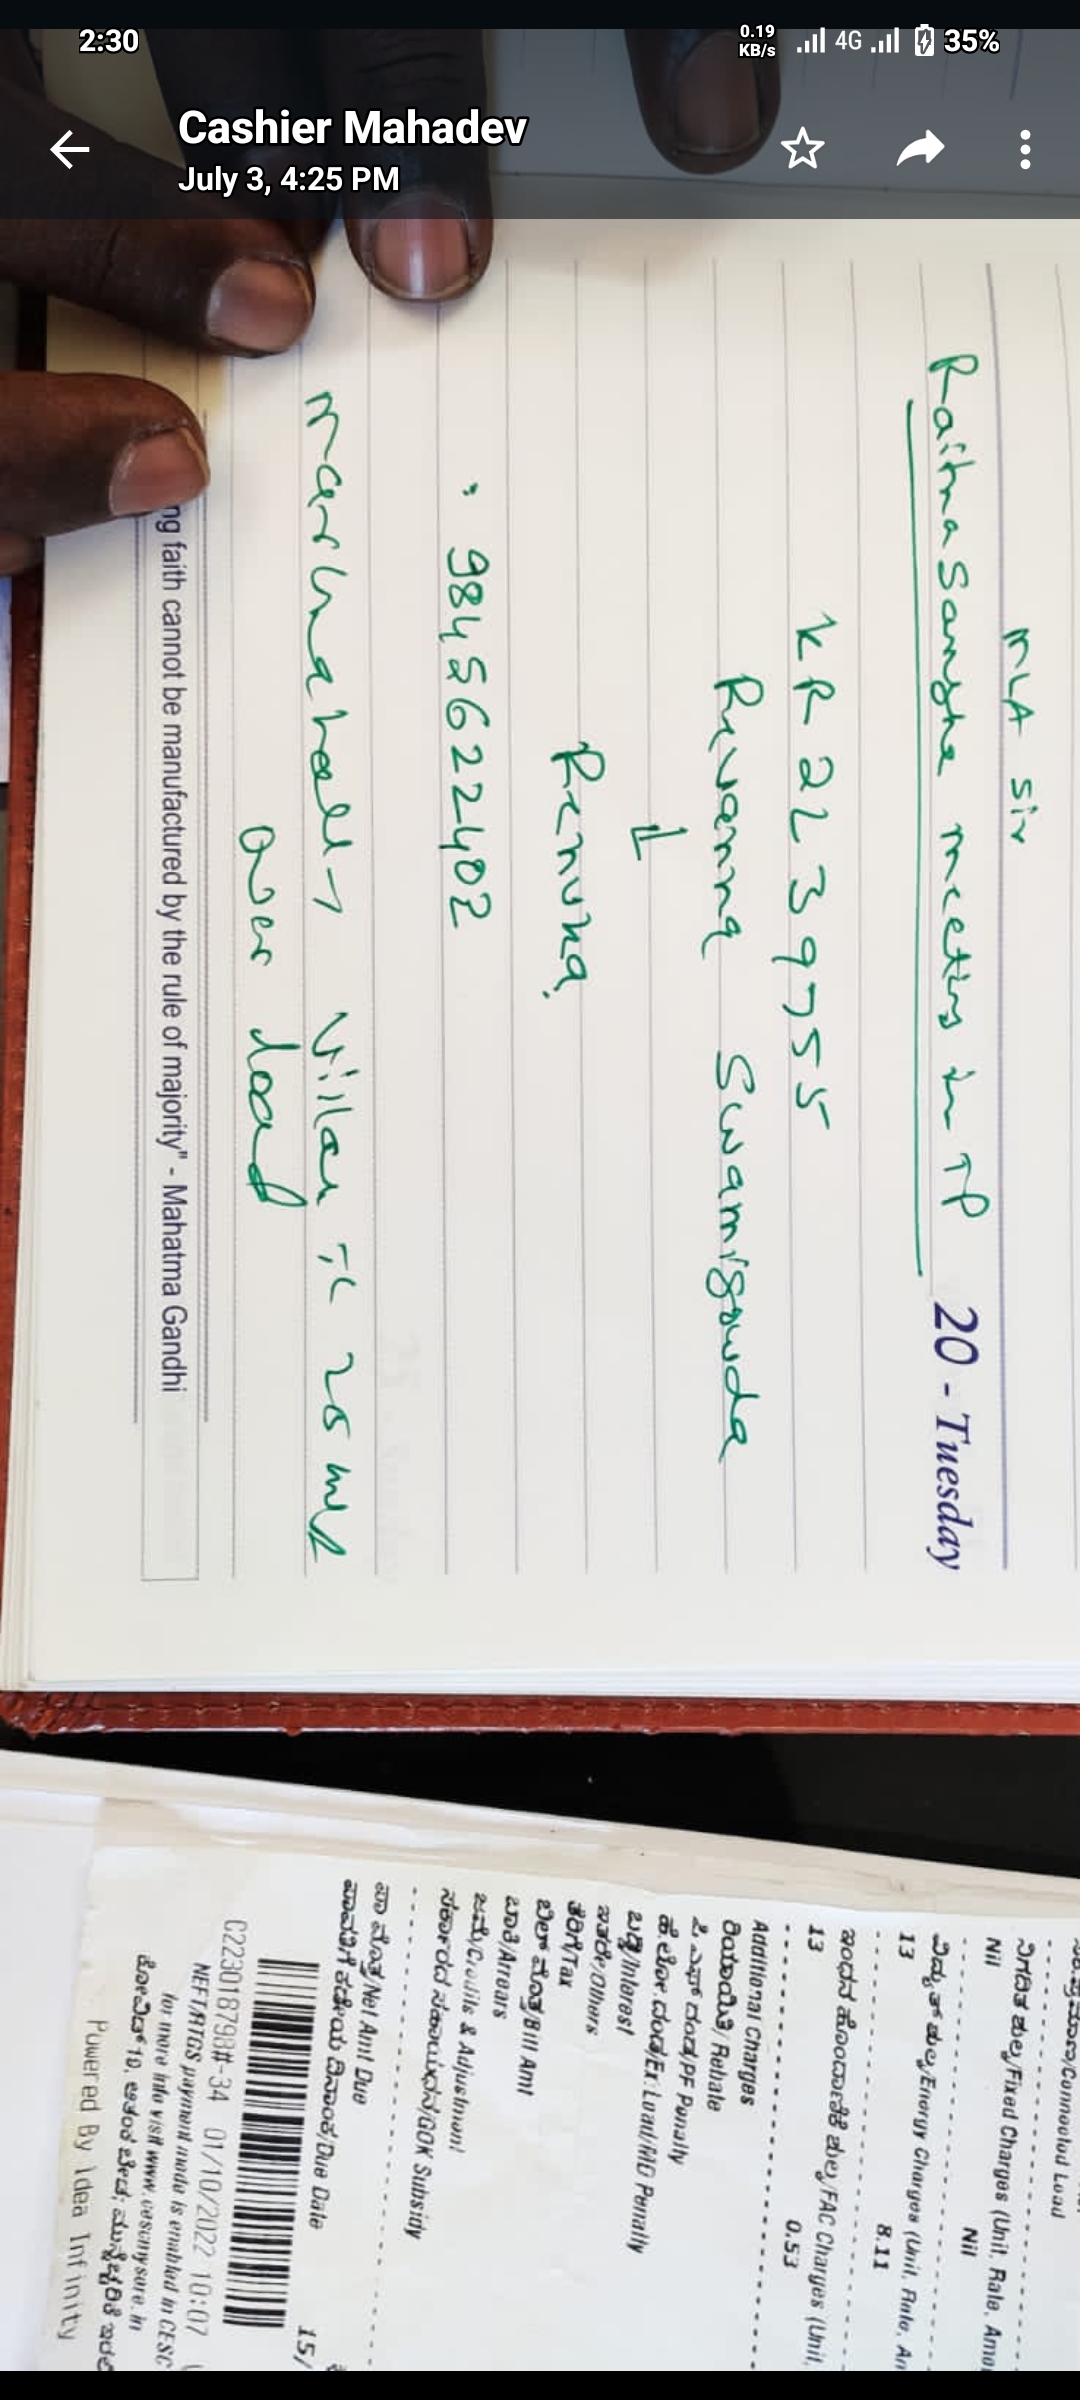 2:30
0.19 KB/s 4G 35%
Cashier Mahadev
July 3, 4:25 PM
MLA Sir
Raitha Sangha meeting in TP
20 - Tuesday
KR 2L39755
Revanna Swamigowda
Renuka.
9845622402
village 25
over load
ng faith cannot be manufactured by the rule of majority" - Mahatma Gandhi
Connected Load
ನಿಗದಿತ ಶುಲ್ಕ/Fixed Charges (Unit, Rate,
Nil Nil
ವಿದ್ಯುತ್ ಶುಲ್ಕ/Energy Charges (Unit, Rate,
13 8.11
ಇಂಧನ ಹೊಂದಾಣಿಕೆ ಶುಲ್ಕ/FAC Charges (Unit,
13 0.53
Additional Charges
ರಿಯಾಯಿತಿ/Rebate
ಪಿ.ಎಫ್ ದಂಡ/PF Penalty
ಹೆ.ಲೋ.ದಂಡ/Ex.Load/MD Penalty
ಬಡ್ಡಿ/Interest
ಇತರೆ/Others
ತೆರಿಗೆ/Tax
ಬಿಲ್ ಮೊತ್ತ/Bill Amt
ಬಾಕಿ/Arrears
ಜಮೆ/Credits & Adjustment
ಸರ್ಕಾರದ ಸಹಾಯಧನ/GOK Subsidy
ಪಾ ಮೊತ್ತ/Net Amt Due
ಪಾವತಿಗೆ ಕಡೆಯ ದಿನಾಂಕ/Due Date 15/
C22301879B#-34 01/10/2022 10:07
NEFT/RTGS payment mode is enabled in CESC
for more info visit www.cescmysore.in
Powered By Idea Infinity